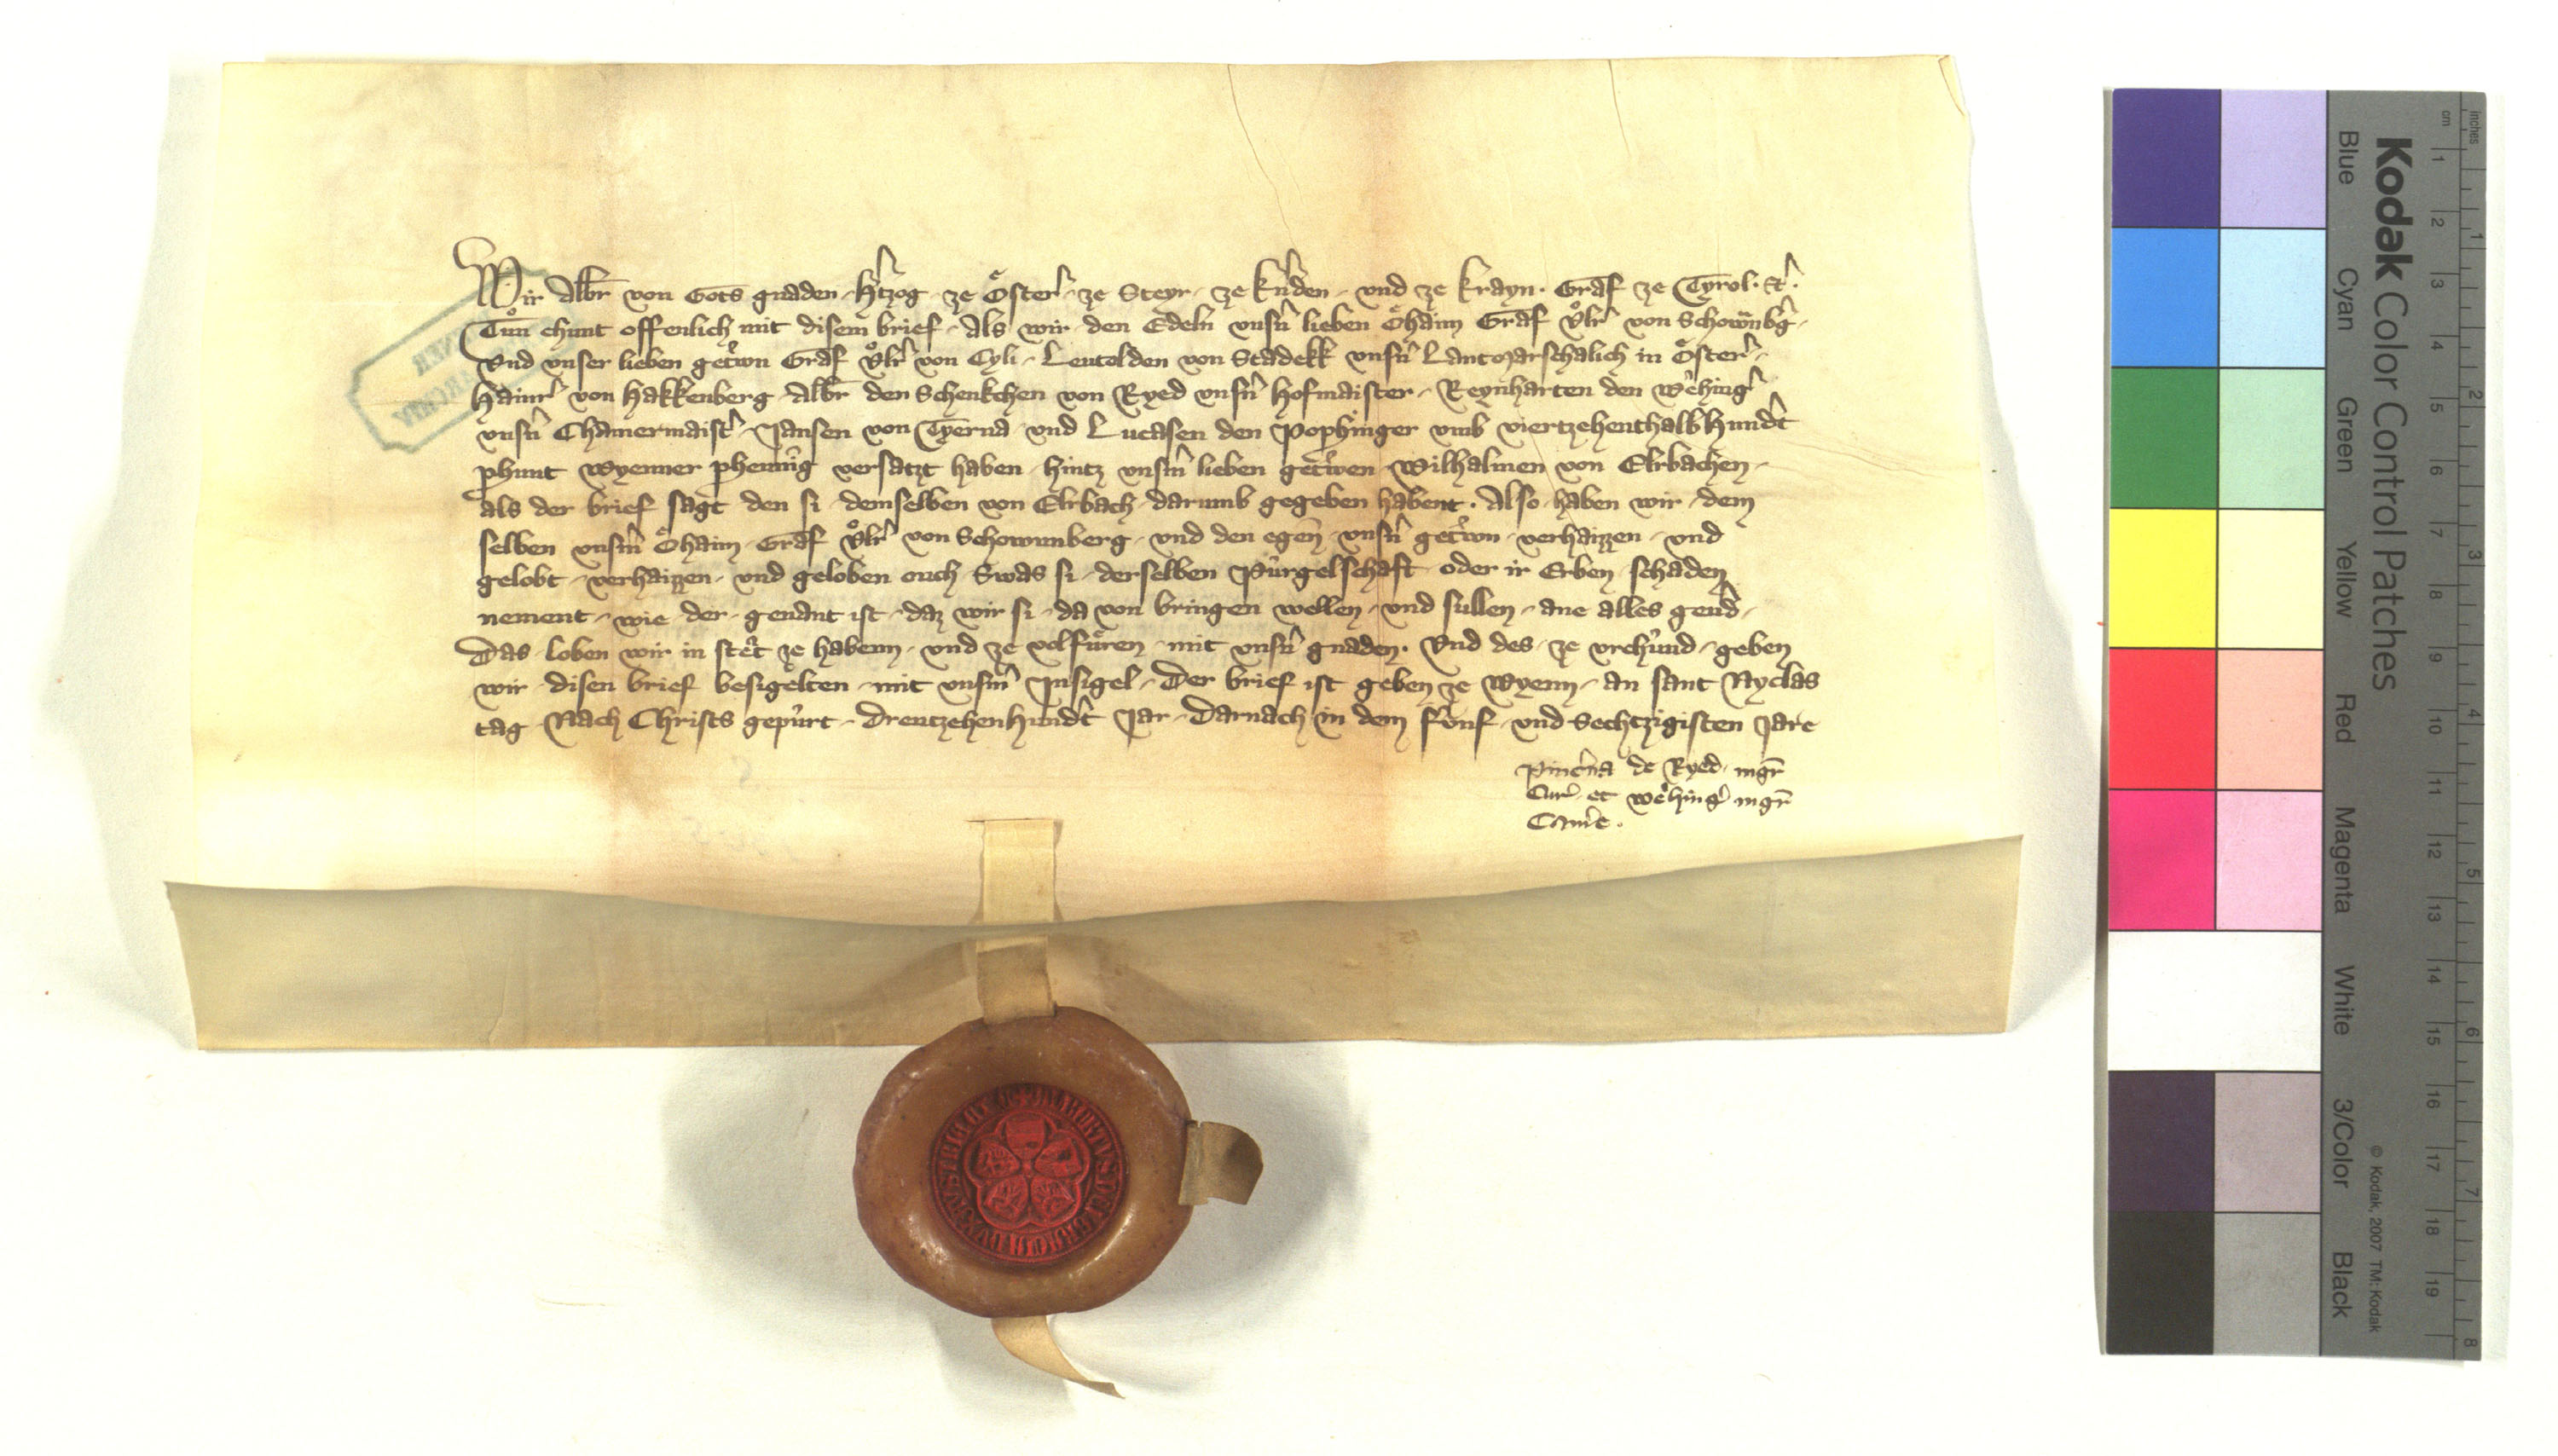 Wir Albr von Gots gnaden Hertzog ze Österr ze Steyr ze Kernden und ze Krayn. Graf ze Tyrol. etc.
Tůn chunt offenlich mit disem brief Als wir den Edeln unsern lieben Öhaim Graf Ůlr von Schownberg
Und unser lieben getrewn Graf Ůlr von Cyli Leutolden von Stadekk unsern Lantmarschalich in Österr
Hainr von Hakkenberg Albr den Schenkchen von Ryed unsern Hofmaister Reynharten den Wehinger
unsern Chamermaister Jansen von Tyerna und Lucasen den Pophinger umb viertzehenthalbHundert
phunt Wyenner phenning versatzt haben hintz unserm lieben getrewen Wilhalmen von Elrbachen
als der brief sagt den si demselben von Elrbach darumb gegeben habent. Also haben wir dem
selben unserm Öhaim Graf Ůlr von Schowunberg und den egen unsern getrewn verhaizzen und
gelobt verhaizzen und geloben ouch Swas si derselben Pürgelschaft oder ir Erben schaden
nement wie der genant ist daz wir si da von bringen wellen und sullen ane alles geverd
Das loben wir in stet ze habenn und ze volfüren mit unsern gnaden. Und des ze urchünd geben
wir disen brief besigelten mit unserm Insigel Der brief ist geben ze Wyenn an sant Nyclas
tag Nach Christs gepürt DreutzehenHundert Jar Darnach in dem fünf und Sechtzigisten Jare
Pincerna de Ryed mgr
Cur et Wehinger mgr
Camere.
Kodak Color Control Patches
Blue Cyan Green Yellow Red Magenta White 3/Color Black
© Kodak, 2007 TM: Kodak
inches 1 2 3 4 5 6 7 8
cm 1 2 3 4 5 6 7 8 9 10 11 12 13 14 15 16 17 18 19